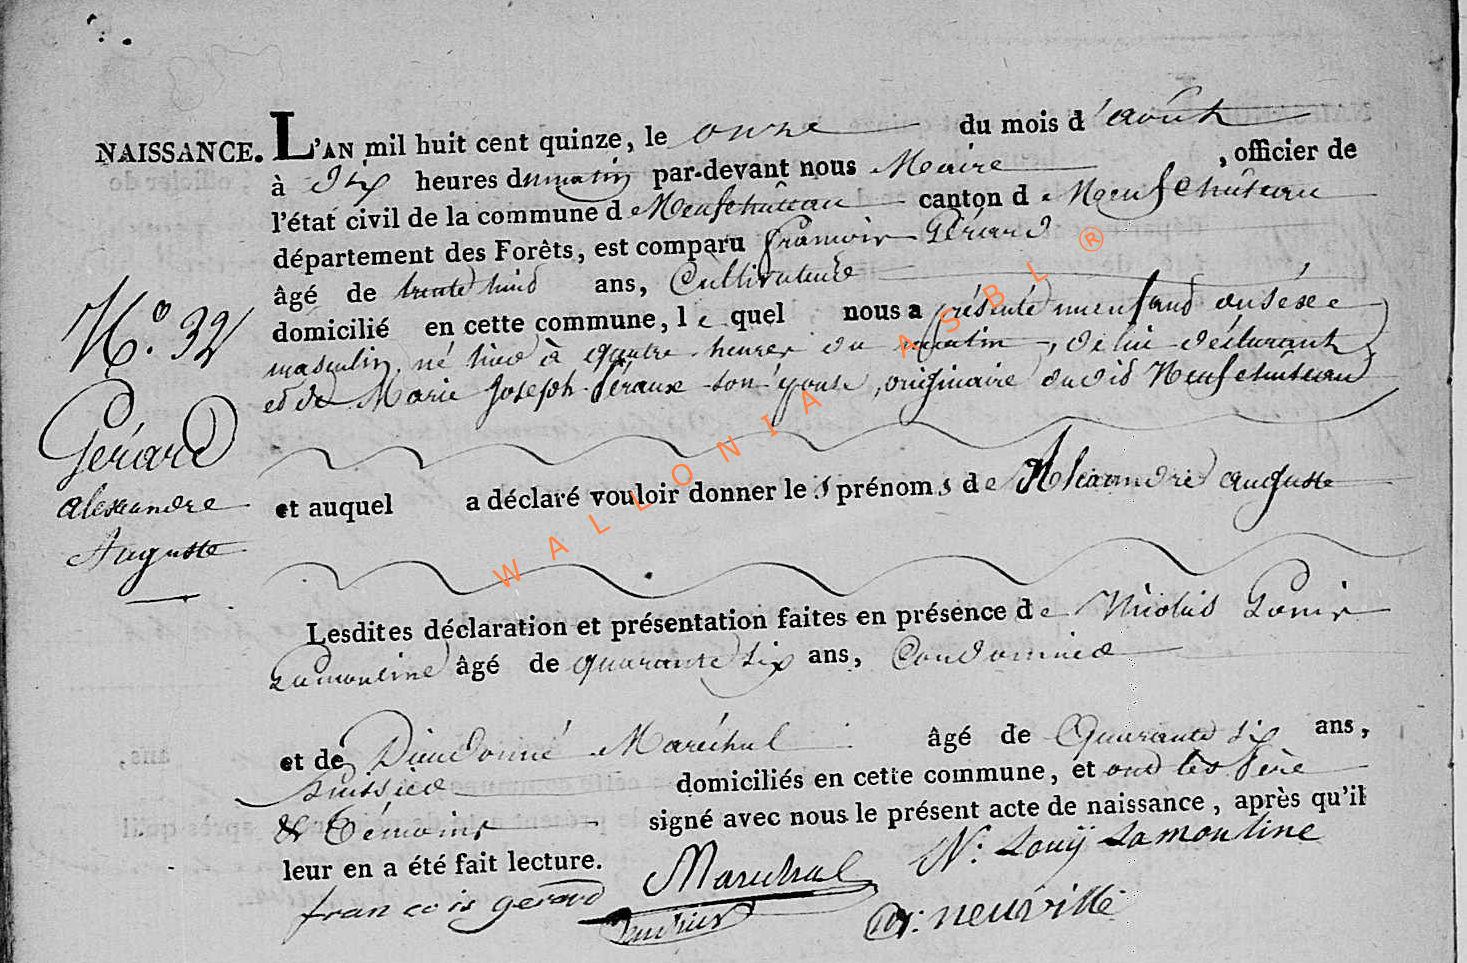 NAISSANCE. L'AN mil huit cent quinze, le onze du mois d'août
à dix heures du matin par-devant nous Maire , officier de
l'état civil de la commune de Neufchâteau canton de Neufchâteau
département des Forêts, est comparu françois Gérard
âgé de trente huid ans, Cultivateur
domicilié en cette commune, lequel nous a présenté un enfand du séxe
masculin, né hier à quatre heures du matin, de lui déclarant
et de Marie Joseph son épouse, originaire dudid Neufchâteau
N.º 32
Gérard
alexandre
Auguste
et auquel a déclaré vouloir donner les prénoms de Alexandre auguste
Lesdites déclaration et présentation faites en présence de Nicolas Louis
Lamouline âgé de quarante six ans, Cordonnier
et de Dieudonné Maréchal âgé de Quarante six ans,
huissier domiciliés en cette commune, et ond les Père
& Témoins signé avec nous le présent acte de naissance, après qu'il
leur en a été fait lecture.
françois gerard Marechal N: Louÿ Lamouline
huissier neuville
WALLONIA ASBL ®